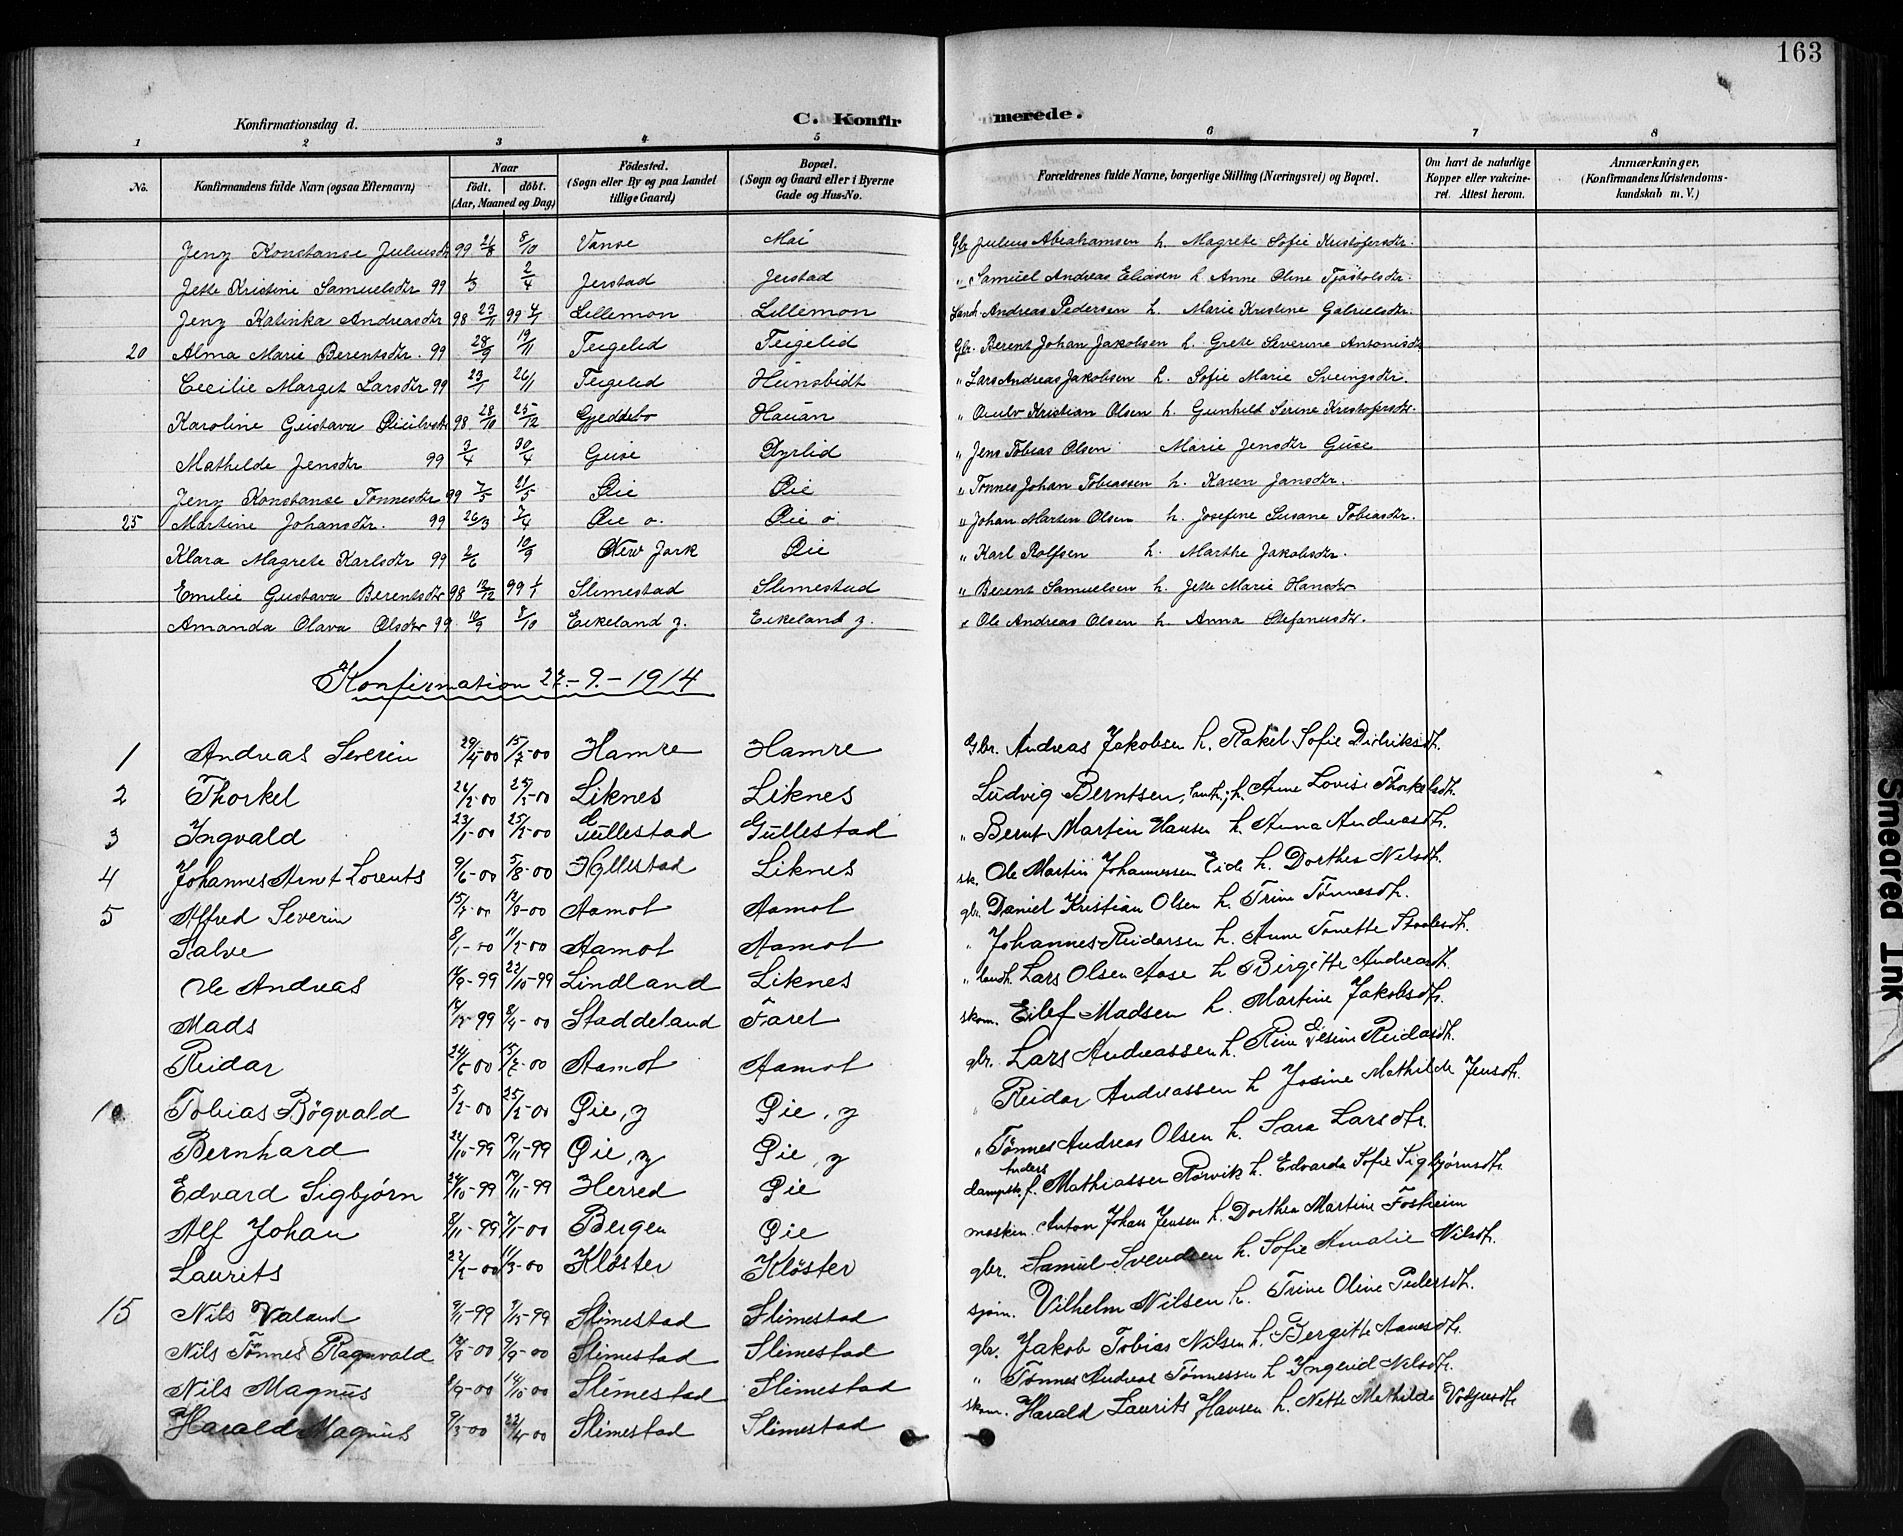 163
Konfirmationsdag d.
C. Konfirmerede.
1 2 3 4 5 6 7 8
No. Konfirmandens fulde Navn (ogsaa Efternavn) Naar födt. döbt. (Aar, Maaned og Dag) Födested. (Sogn eller By og paa Landet tillige Gaard) Bopæl. (Sogn og Gaard eller i Byerne Gade og Hus-No. Forældrenes fulde Navne, borgerlige Stilling (Næringsvei) og Bopæl. Om havt de naturlige Kopper eller vaccineret. Attest herom. Anmærkninger, (Konfirmandens Kristendomskundskab m. V.)
Jeny Konstanse Juliusdtr 99 8/10 Vanse Mai Gbr Julius Abrahamsen h. Magrete Sofie Kristofersdtr.
Jette Kristine Samuelsdtr 99 1/3 2/4 Jerstad Jerstad " Samuel Andreas Eliasen h Anne Oline Tjøstolsdtr.
Jeny Katinka Andreasdtr 98 23/11 99 Lillemon Lillemon Andreas Pedersen h. Marie Kristine Gabrielsdtr.
20 Alma Marie Berentsdtr. 99 28/9 19/11 Teigelid Feigelid Gbr. Berent Johan Jakobsen h. Grete Severine Antonisdtr
Cecilie Marget Larsdtr 99 23/7 26/11 Teigelid Hunsbidt " Lars Andreas Jakobsen h. Sofie Marie Sveingsdtr.
Karoline Gustava 98 28/10 25/12 Gjeddebo Hauan " Kristian Olsen h. Gunhild Serine Kristofersdtr.
Mathilde Jensdtr 99 3/4 30/4 Guse Dyrlid " Jens Tobias Olsen Marie Jensdtr Guse
Jeny Konstanse Tönnesdtr 99 7/5 21/5 Øie Øie " Tönnes Johan Tobiassen h. Karen Jansdtr.
25 Martine Johansdtr. 99 26/3 7/4 Øie o. Øie o " Johan Marten Olsen h. Josefine Susane Tobiasdtr.
Klara Magrete Karlsdtr 99 2/6 10/9 New Jork Øie " Karl Rolfsen h. Marthe Jakobsdtr.
Emilie Gustava Berentsdtr 98 12/12 99 Slimestad Slimestad " Berent Samuelsen h. Jette Marie Hansdtr
Amanda Olava Olsdtr 99 10/9 8/10 Eikeland y. Eikeland y. " Ole Andreas Olsen h. Anna Stefanusdtr.
Konfirmation 27.-9.-1914
1 Andreas Severin 29/4-00 15/7-00 Hamre Hamre Gbr. Andreas Jakobsen h. Rakel Sofie Didriksdtr.
2 Thorkel 26/2-00 25/3-00 Liknes Liknes Ludvig Berntsen, h. Anne Lovise Thorkelsdtr.
3 Ingvald 23/1-00 25/2-00 Gullestad Gullestad " Bernt Martin Hansen h. Anna Andreasdtr.
4 Johannes Arnt Lorents 9/6-00 5/8-00 Hyllestad Liknes sk. Ole Martin Johannessen Eide h. Dorthea Nilsdtr.
5 Alfred Severin 12/8-00 Aamot Aamot gbr. Daniel Kristian Olsen h. Trine Tönnesdtr.
Salve 8/1-00 11/2-00 Aamot Aamot " Johannes Reidarsen h. Anne Tonette
Ole Andreas 22/10-99 Lindland Liknes " landh. Lars Olsen Aase h Birgitte Andreasdtr.
Mads 8/4-00 Staddeland Faret skom. Eilef Madsen h. Martine Jakobsdtr.
Reidar 24/5-00 15/7-00 Aamot Aamot gbr. Lars Andreassen h. Gesine Reidarsdtr.
10 Tobias Bögvald 5/2-00 25/2-00 Øie, y Øie, y " Reidar Andreassen h Josine Mathilde Jensdtr.
Bernhard 22/10-99 19/11-99 Øie, y Øie, y " Tönnes Andreas Olsen h. Sara Larsdtr.
Edvard Sigbjörn 24/10-99 19/11-99 Herred Øie dampsk. f. Anders Mathiassen Rørvik h. Edvarda Sofie Sigbjörnsdtr.
Alf Johan 8/11-99 7/1-00 Bergen Øie maskin. Anton Johan Jensen h. Dorthea Martine Fosheim
Laurits 22/2-00 11/3-00 Kloster Klöster gbr. Samuel Svendsen h. Sofie Amalie Nilsdtr.
15 Nils Valand Slimestad Slimestad sjöm. Vilhelm Nilsen h. Trine Oline Pedersdtr.
Nils Tönnes Ragnvald Slimestad Slimestad gbr. Jakob Tobias Nilsen h. Bergitte Aanesdtr.
Nils Magnus 14/10-00 Slimestad Slimestad " Tönnes Andreas Tönnessen h Ingerid Nilsdtr.
Harald Magnus 9/3-00 22/4-00 Slimestad Slimestad skom. Harald Laurits Hansen h. Nette Mathilde
Smeared Ink